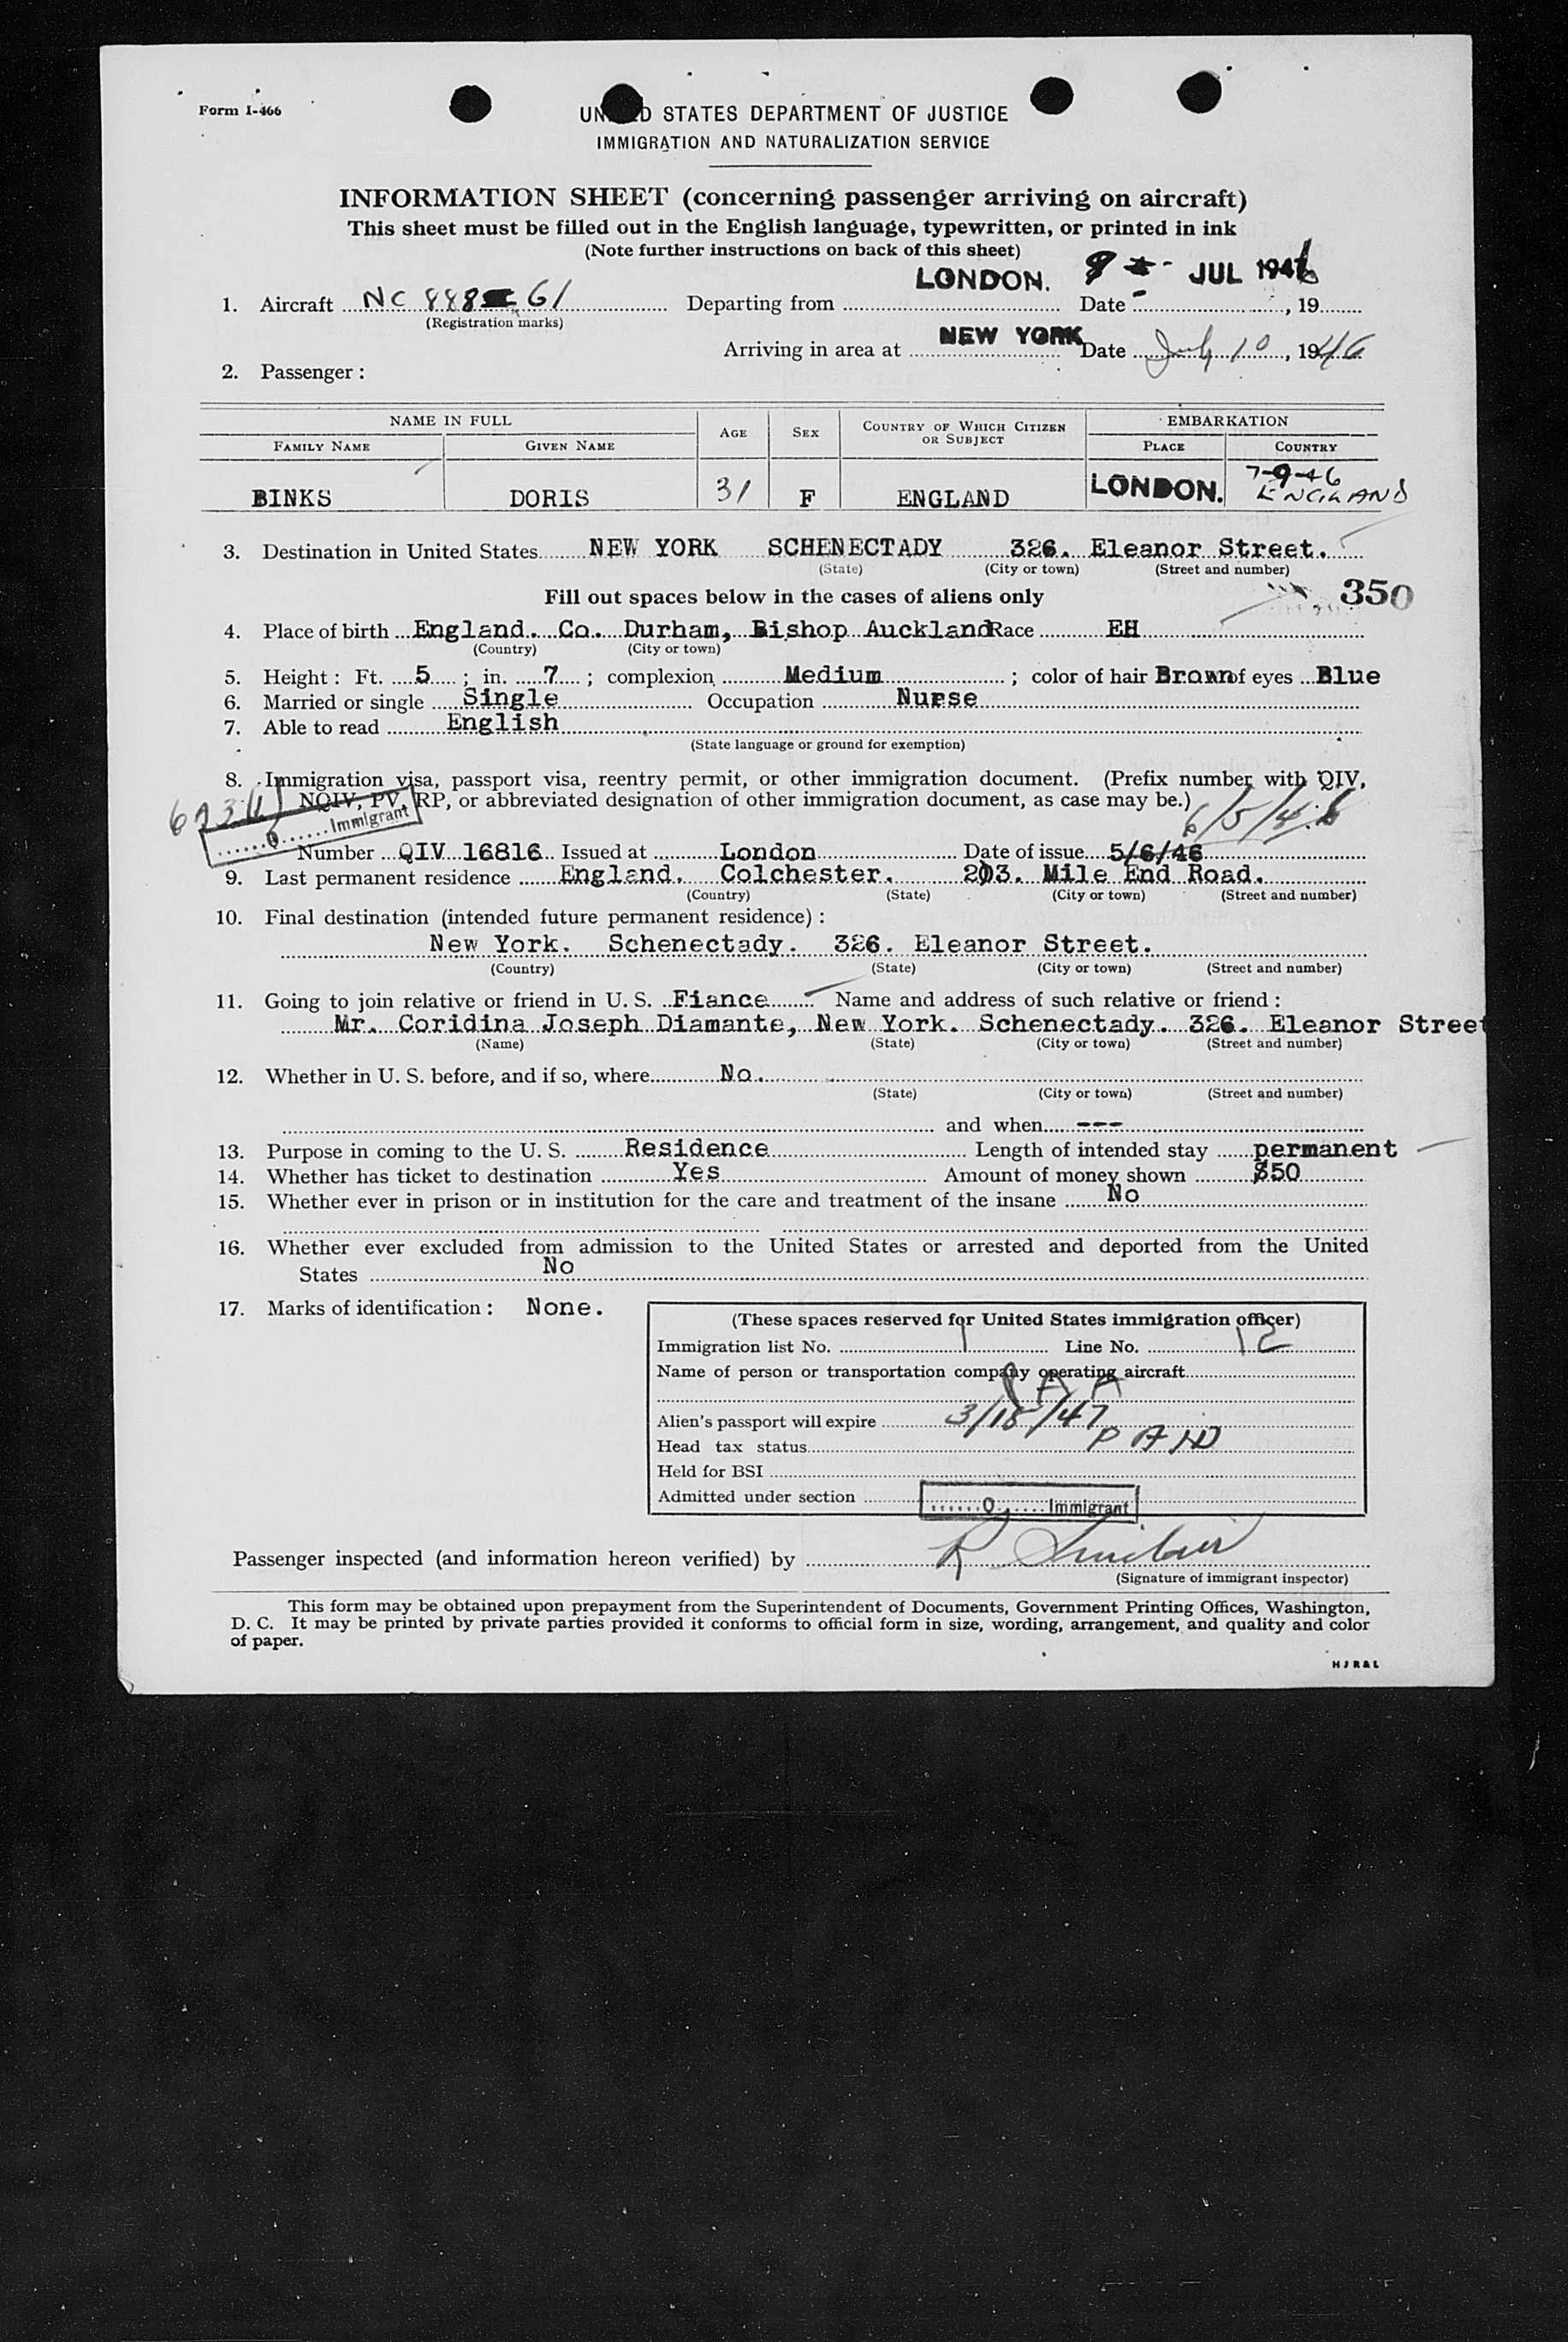 Form I-466
UNITED STATES DEPARTMENT OF JUSTICE
IMMIGRATION AND NATURALIZATION SERVICE
INFORMATION SHEET (concerning passenger arriving on aircraft)
This sheet must be filled out in the English language, typewritten, or printed in ink
(Note further instructions on back of this sheet)
1. Aircraft NC 888 61 Departing from LONDON. Date 9 JUL 1946, 19
(Registration marks)
Arriving in area at NEW YORK Date July 10, 1946
2. Passenger :
NAME IN FULL AGE SEX COUNTRY OF WHICH CITIZEN OR SUBJECT EMBARKATION
FAMILY NAME GIVEN NAME PLACE COUNTRY
7-9-46
BINKS DORIS 31 F ENGLAND LONDON. ENGLAND
3. Destination in United States NEW YORK SCHENECTADY 326. Eleanor Street.
(State) (City or town) (Street and number)
Fill out spaces below in the cases of aliens only 350
4. Place of birth England. Co. Durham, Bishop Auckland Race EH
(Country) (City or town)
5. Height : Ft. 5 ; in. 7 ; complexion Medium ; color of hair Brown of eyes Blue
6. Married or single Single Occupation Nurse
7. Able to read English
(State language or ground for exemption)
8. Immigration visa, passport visa, reentry permit, or other immigration document. (Prefix number with QIV,
NQIV, PV, RP, or abbreviated designation of other immigration document, as case may be.)
Q Immigrant 6/5/46
Number QIV 16816 Issued at London Date of issue 5/6/46
9. Last permanent residence England. Colchester. 203. Mile End Road.
(Country) (State) (City or town) (Street and number)
10. Final destination (intended future permanent residence) :
New York. Schenectady. 326. Eleanor Street.
(Country) (State) (City or town) (Street and number)
11. Going to join relative or friend in U. S. Fiance Name and address of such relative or friend :
Mr. Coridina Joseph Diamante, New York. Schenectady. 326. Eleanor Street
(Name) (State) (City or town) (Street and number)
12. Whether in U. S. before, and if so, where No.
(State) (City or town) (Street and number)
and when ---
13. Purpose in coming to the U. S. Residence Length of intended stay permanent
14. Whether has ticket to destination Yes Amount of money shown $50
15. Whether ever in prison or in institution for the care and treatment of the insane No
16. Whether ever excluded from admission to the United States or arrested and deported from the United
States No
17. Marks of identification : None.
(These spaces reserved for United States immigration officer)
Immigration list No. 1 Line No. 12
Name of person or transportation company operating aircraft
PAA
Alien's passport will expire 3/15/47
Head tax status PAID
Held for BSI
Admitted under section Q Immigrant
Passenger inspected (and information hereon verified) by R Sinclair
(Signature of immigrant inspector)
This form may be obtained upon prepayment from the Superintendent of Documents, Government Printing Offices, Washington,
D. C. It may be printed by private parties provided it conforms to official form in size, wording, arrangement, and quality and color
of paper.
H J R & L